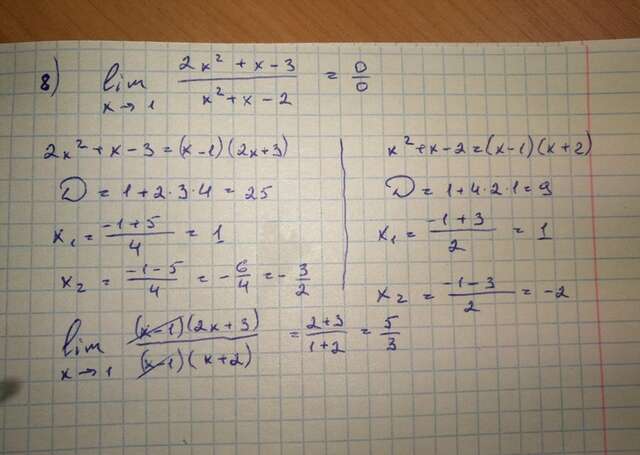 8) lim x→1 (2x² + x - 3)/(x² + x - 2) = 0/0
2x² + x - 3 = (x-1)(2x+3)
D = 1 + 2·3·4 = 25
x₁ = (-1+5)/4 = 1
x₂ = (-1-5)/4 = -6/4 = -3/2
x² + x - 2 = (x-1)(x+2)
D = 1 + 4·2·1 = 9
x₁ = (-1+3)/2 = 1
x₂ = (-1-3)/2 = -2
lim x→1 (x-1)(2x+3)/(x-1)(x+2) = (2+3)/(1+2) = 5/3